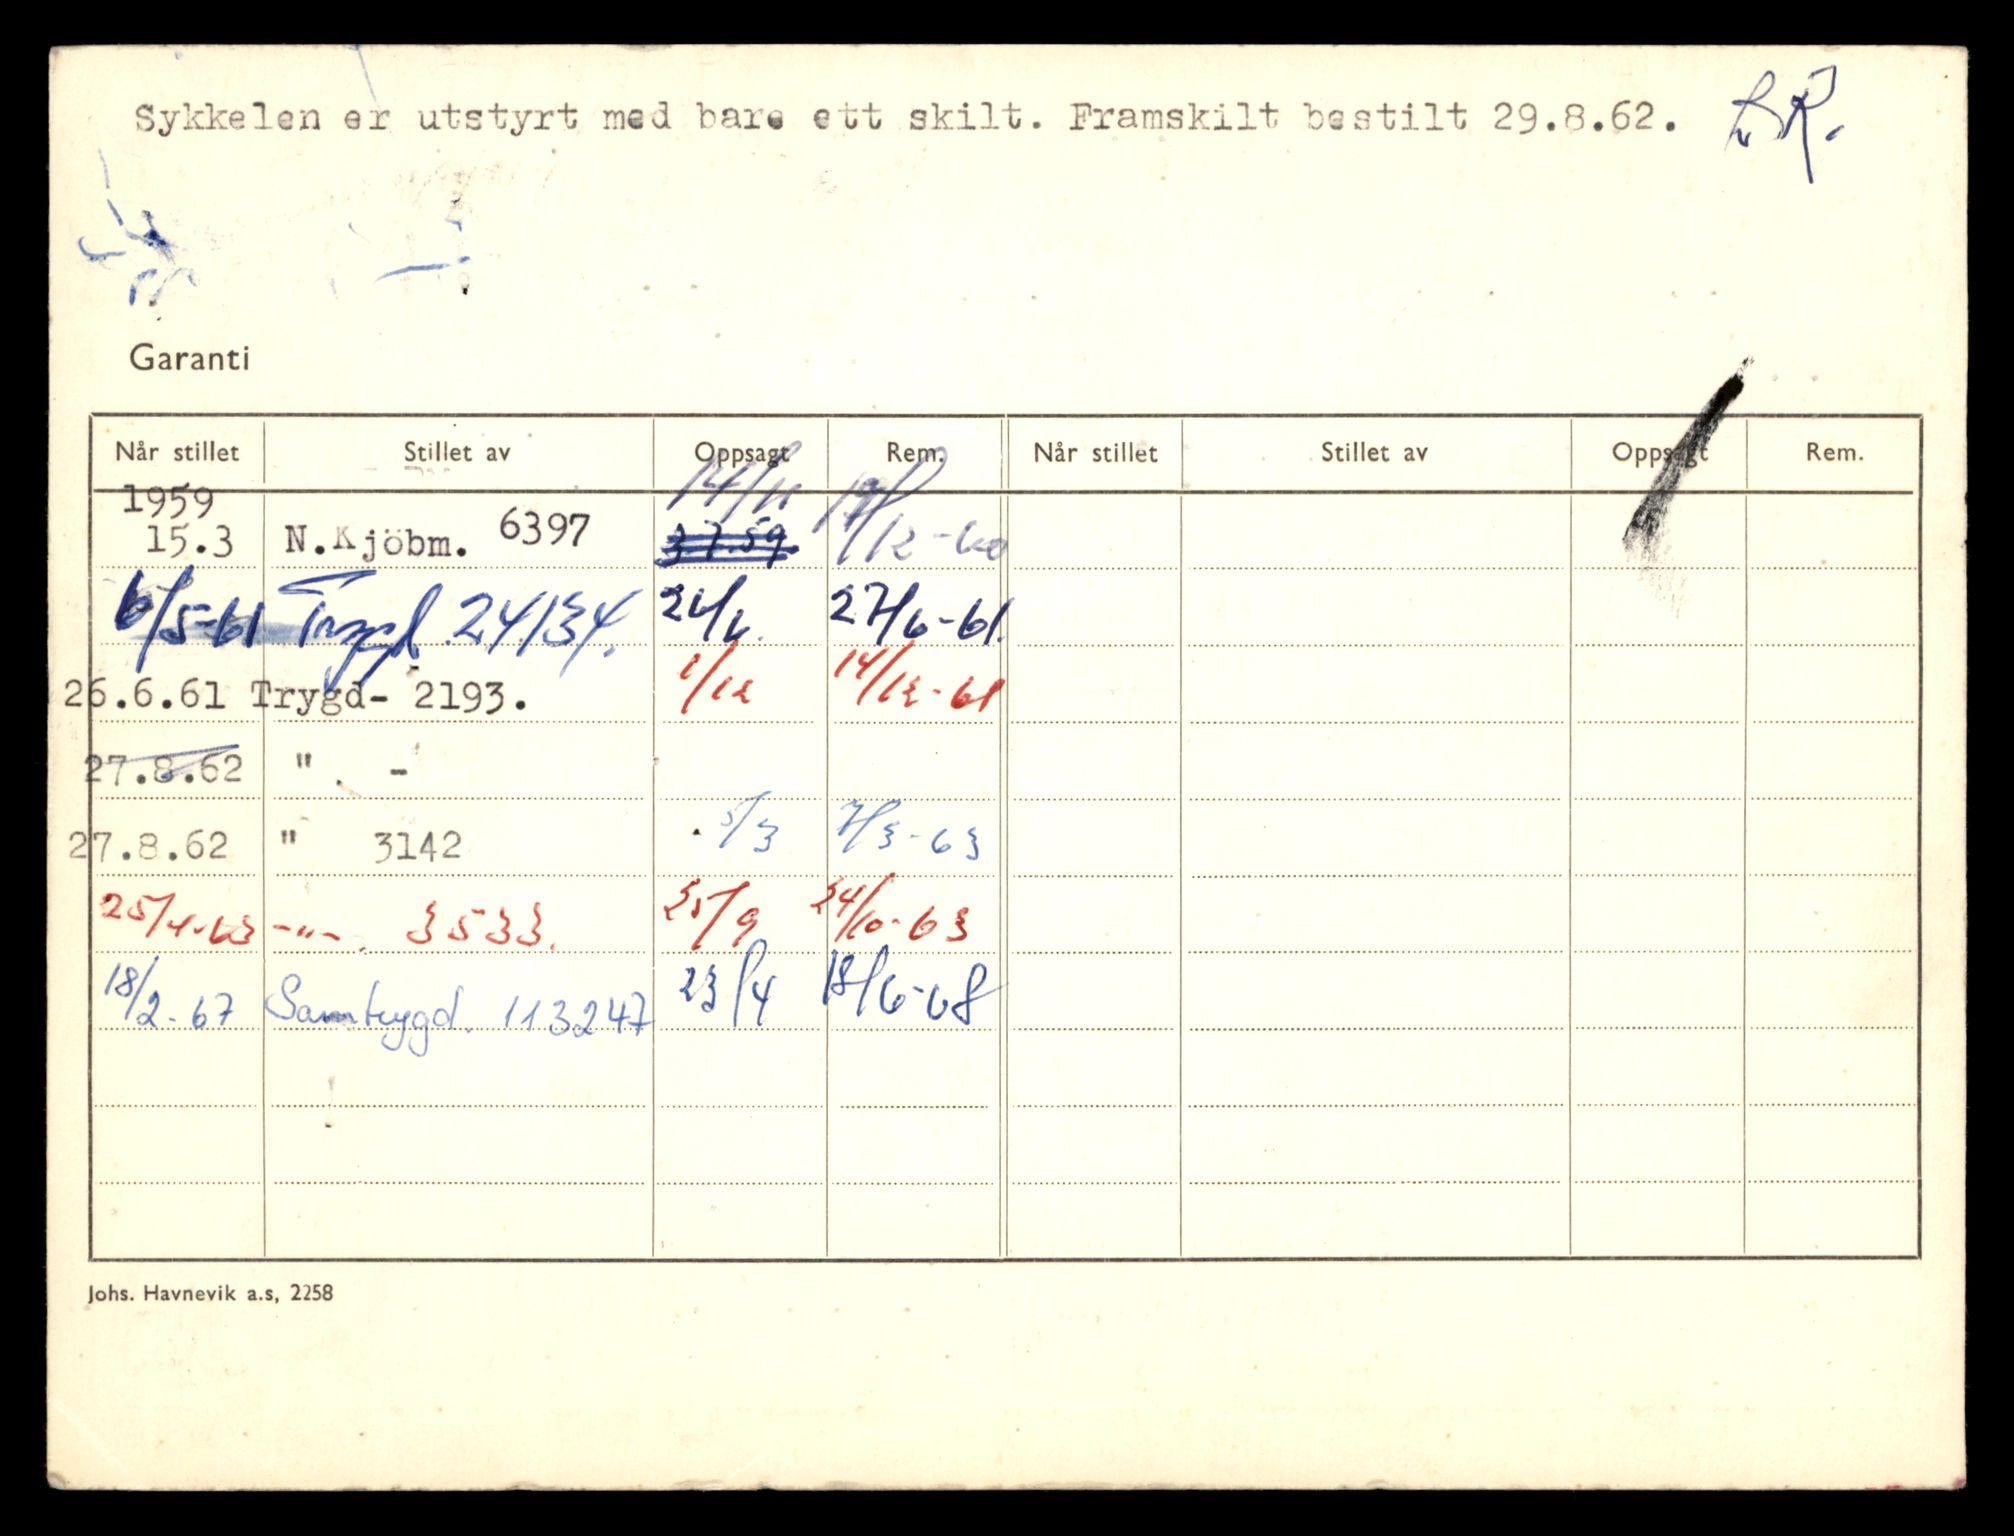 Sykkelen er utstyrt med bare ett skilt. Framskilt bestilt 29.8.62. LR.
Garanti
Når stillet Stillet av Oppsagt Rem. Når stillet Stillet av Oppsagt Rem.
1959 14/11
15.3 N.Kjöbm. 6397 3.7.59 /12-60
6/5-61 Trygd. 24134. 24/6. 27/6-61.
26.6.61 Trygd- 2193. 1/12 14/12-61
27.8.62 " -
27.8.62 " 3142 5/3 7/3-63
25/4-63 -"- 3533. 25/9 24/10-63
18/2-67 Samtrygd. 113247 23/4 18/6-68
Johs. Havnevik a.s, 2258